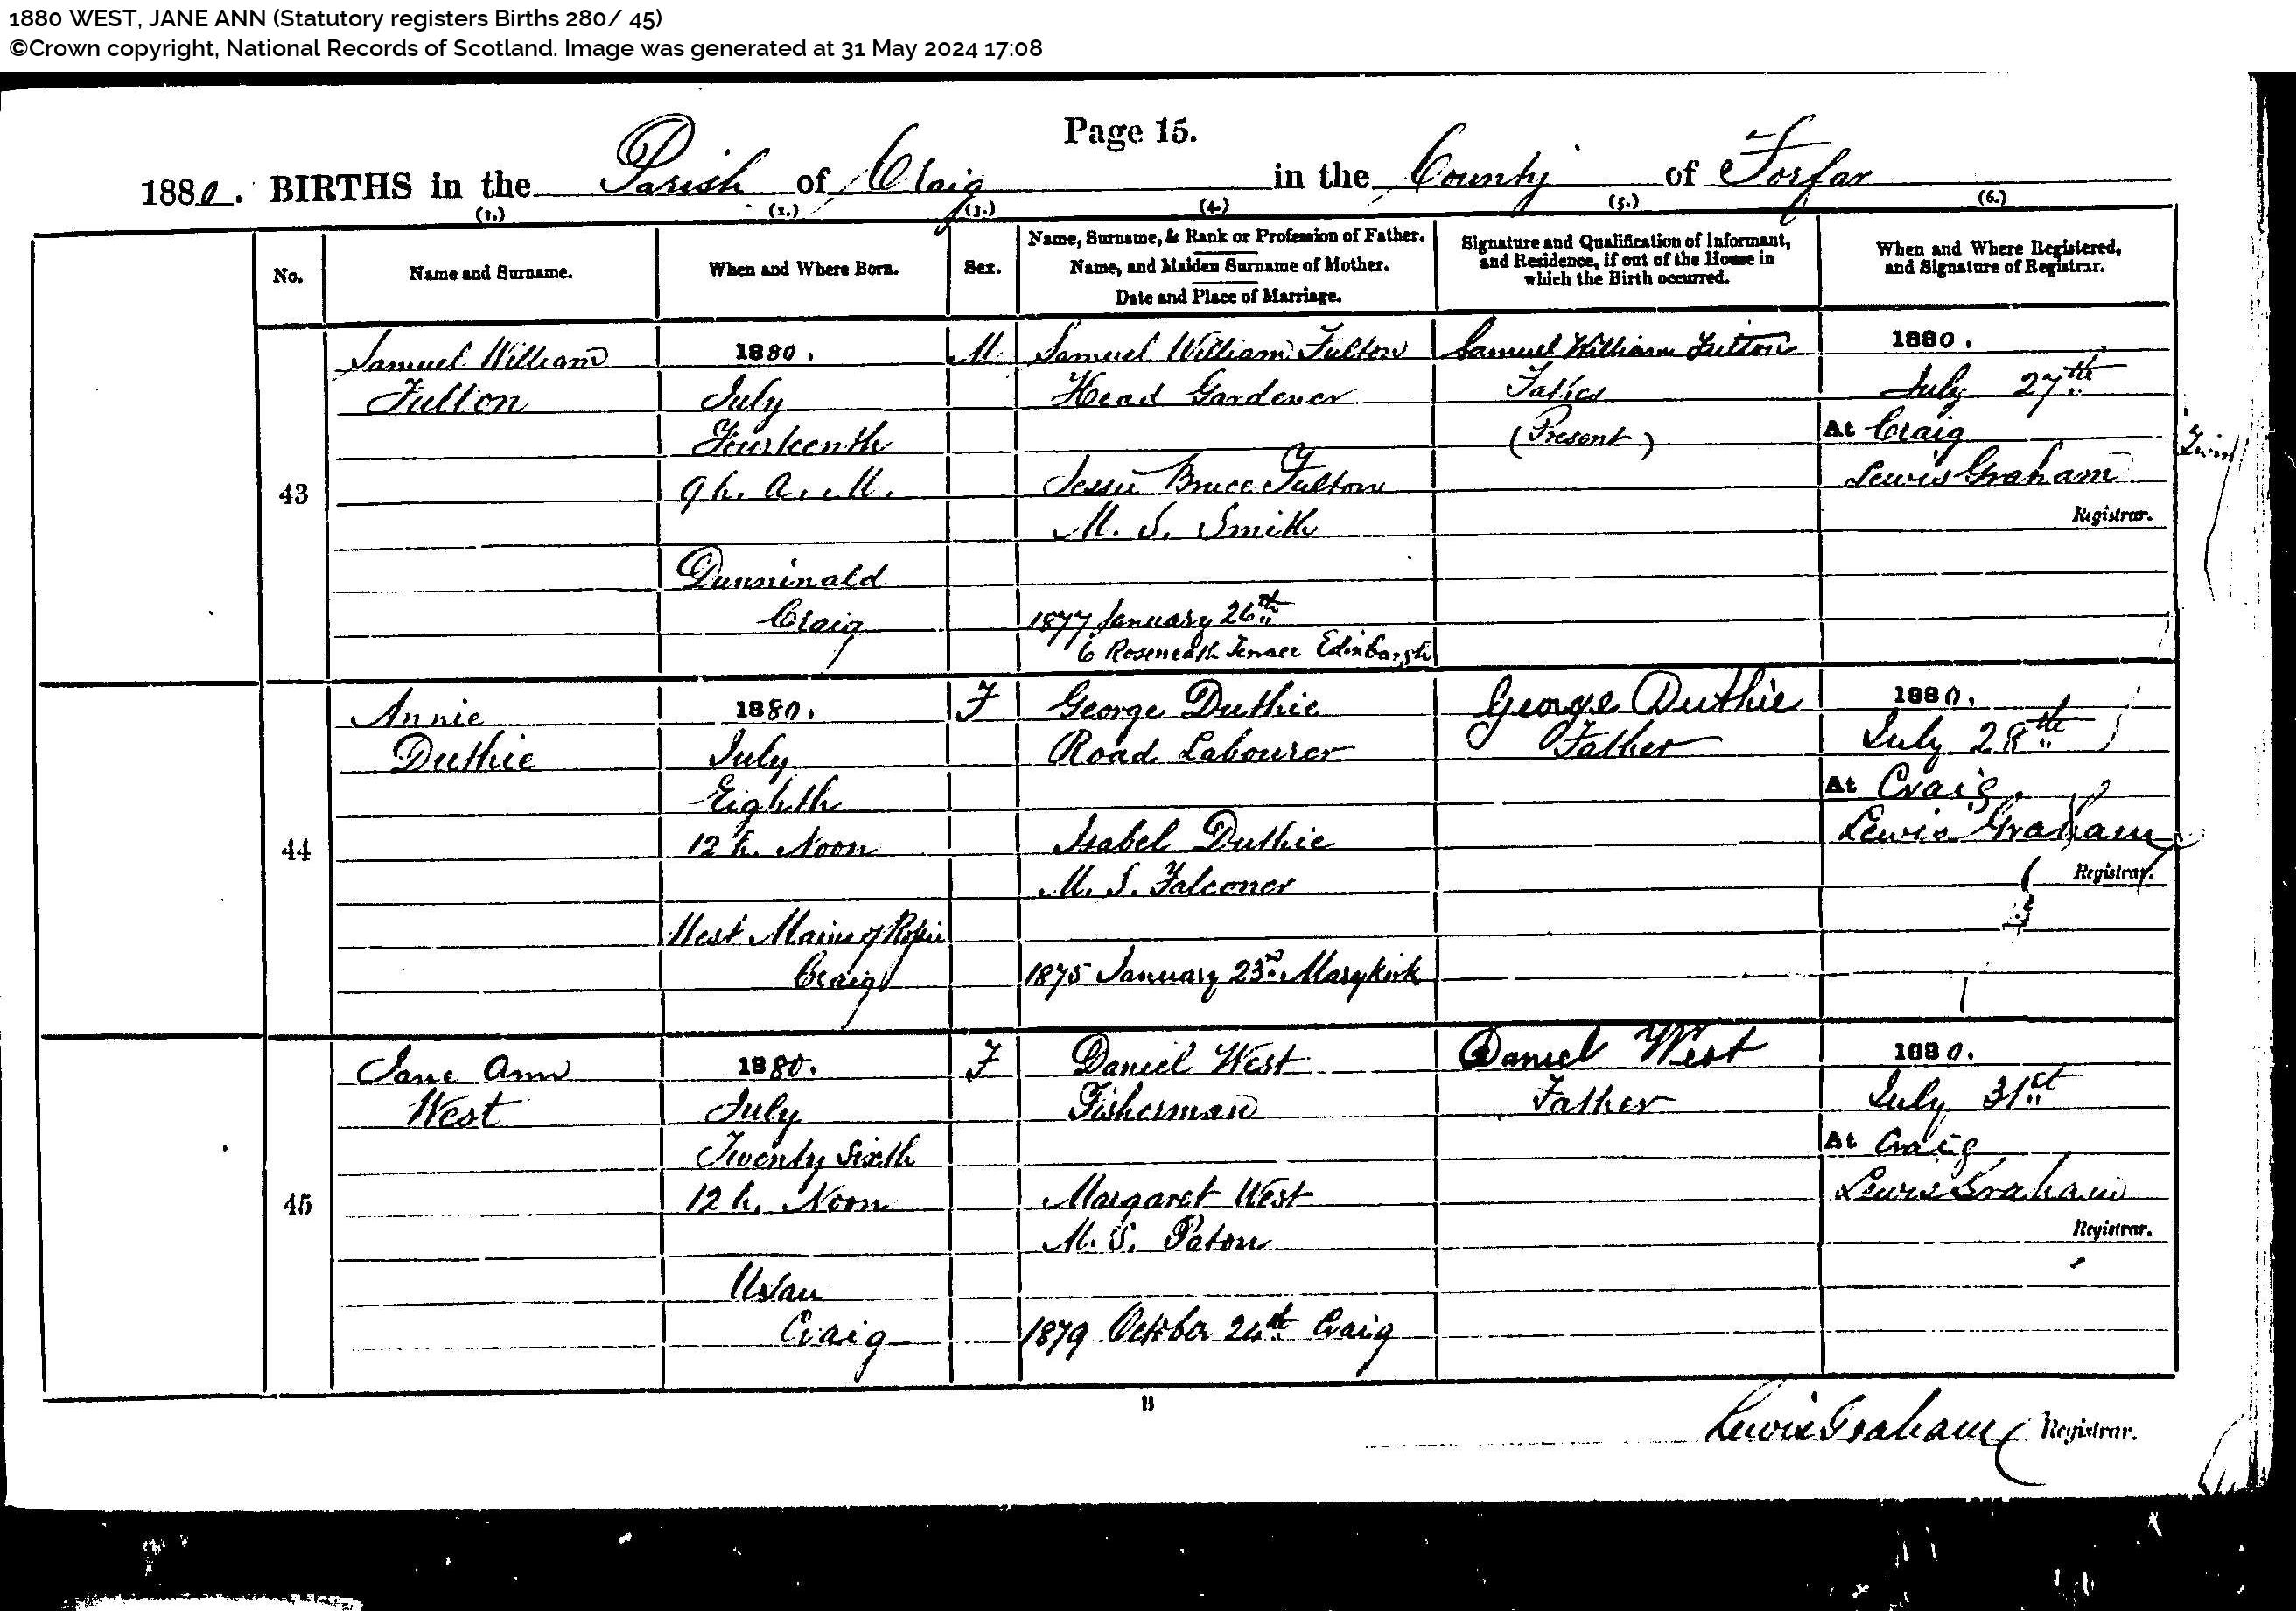 1880 WEST, JANE ANN (Statutory registers Births 280/ 45)
©Crown copyright, National Records of Scotland. Image was generated at 31 May 2024 17:08
Page 15.
1880. BIRTHS in the Parish of Craig in the County of Forfar
(1.) (2.) (3.) (4.) (5.) (6.)
No.
Name and Surname.
When and Where Born.
Sex.
Name, Surname, & Rank or Profession of Father.
Name, and Maiden Surname of Mother.
Date and Place of Marriage.
Signature and Qualification of Informant,
and Residence, if out of the House in
which the Birth occurred.
When and Where Registered,
and Signature of Registrar.
43
Samuel William
Fulton
1880.
July
Fourteenth
9 h. A. M.
Dunninald
Craig
M
Samuel William Fulton
Head Gardener
Jessie Bruce Fulton
M. S. Smith
1877 January 26th
6 Roseneath Terrace Edinburgh
Samuel William Fulton
Father
(Present)
1880.
July 27th
At Craig
Lewis Graham
Registrar.
44
Annie
Duthie
1880.
July
Eighth
12 h. Noon
West Mains of Rossie
Craig
F
George Duthie
Road Labourer
Isabel Duthie
M. S. Falconer
1875 January 23rd Marykirk
George Duthie
Father
1880.
July 28th
At Craig
Lewis Graham
Registrar.
45
Jane Ann
West
1880.
July
Twenty Sixth
12 h. Noon
Usan
Craig
F
Daniel West
Fisherman
Margaret West
M. S. Paton
1879 October 24th Craig
Daniel West
Father
1880.
July 31st
At Craig
Lewis Graham
Registrar.
Lewis Graham Registrar.